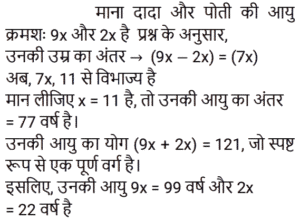 माना दादा और पोती की आयु
क्रमशः 9x और 2x है प्रश्न के अनुसार,
उनकी उम्र का अंतर → (9x – 2x) = (7x)
अब, 7x, 11 से विभाज्य है
मान लीजिए x = 11 है, तो उनकी आयु का अंतर
= 77 वर्ष है।
उनकी आयु का योग (9x + 2x) = 121, जो स्पष्ट
रूप से एक पूर्ण वर्ग है।
इसलिए, उनकी आयु 9x = 99 वर्ष और 2x
= 22 वर्ष है